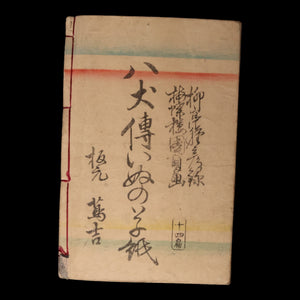 柳下亭種員録
梅蝶樓國貞画
十四編
八犬傳いぬの草紙
板元 蔦吉